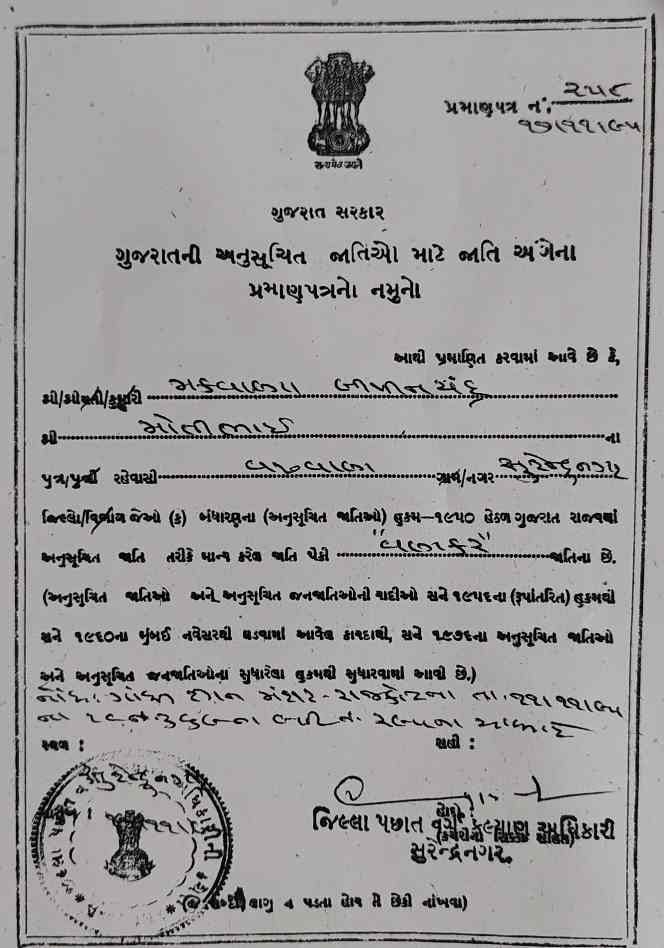 પ્રમાણપત્ર નં. ૨૫૮
૧૭/૧૧/૯૫
સત્યમેવ જયતે
ગુજરાત સરકાર
ગુજરાતની અનુસૂચિત જાતિઓ માટે જાતિ અંગેના
પ્રમાણપત્રનો નમુનો
આથી પ્રમાણિત કરવામાં આવે છે કે,
શ્રી/શ્રીમતી/કુમારી મકવાણા બીપીનચંદ્ર
શ્રી મોતીભાઈ ના
પુત્ર/પુત્રી રહેવાસી વઢવાણ ગ્રામ/નગર સુરેન્દ્રનગર
જિલ્લો/વિભાગ જેઓ (ક) બંધારણના (અનુસૂચિત જાતિઓ) હુકમ-૧૯૫૦ હેઠળ ગુજરાત રાજ્યમાં
અનુસૂચિત જાતિ તરીકે માન્ય કરેલ જાતિ પૈકી "વણકર" જાતિના છે.
(અનુસૂચિત જાતિઓ અને અનુસૂચિત જનજાતિઓની યાદીઓ સને ૧૯૫૬ના (રૂપાંતરિત) હુકમથી
સને ૧૯૬૦ના મુંબઈ નવેસરથી ઘડવામાં આવેલ કાયદાથી, સને ૧૯૭૬ના અનુસૂચિત જાતિઓ
અને અનુસૂચિત જનજાતિઓના સુધારેલા હુકમથી સુધારવામાં આવી છે.)
નોંધ: રાજકોટના તા.
ના
સ્થળ : સહી :
જિલ્લા પછાત વર્ગ કલ્યાણ અધિકારી
સુરેન્દ્રનગર
લાગુ ન પડતા હોય તે છેકી નાંખવા)